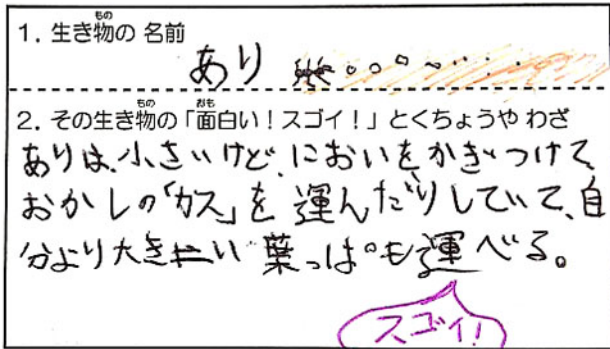 1. 生き物の 名前
あり
2. その生き物の「面白い！スゴイ！」とくちょうや わざ
ありは、小さいけど、においをかぎつけて、
おかしの「カス」を運んだりしていて、自
分より大きい葉っぱも運べる。
スゴイ！